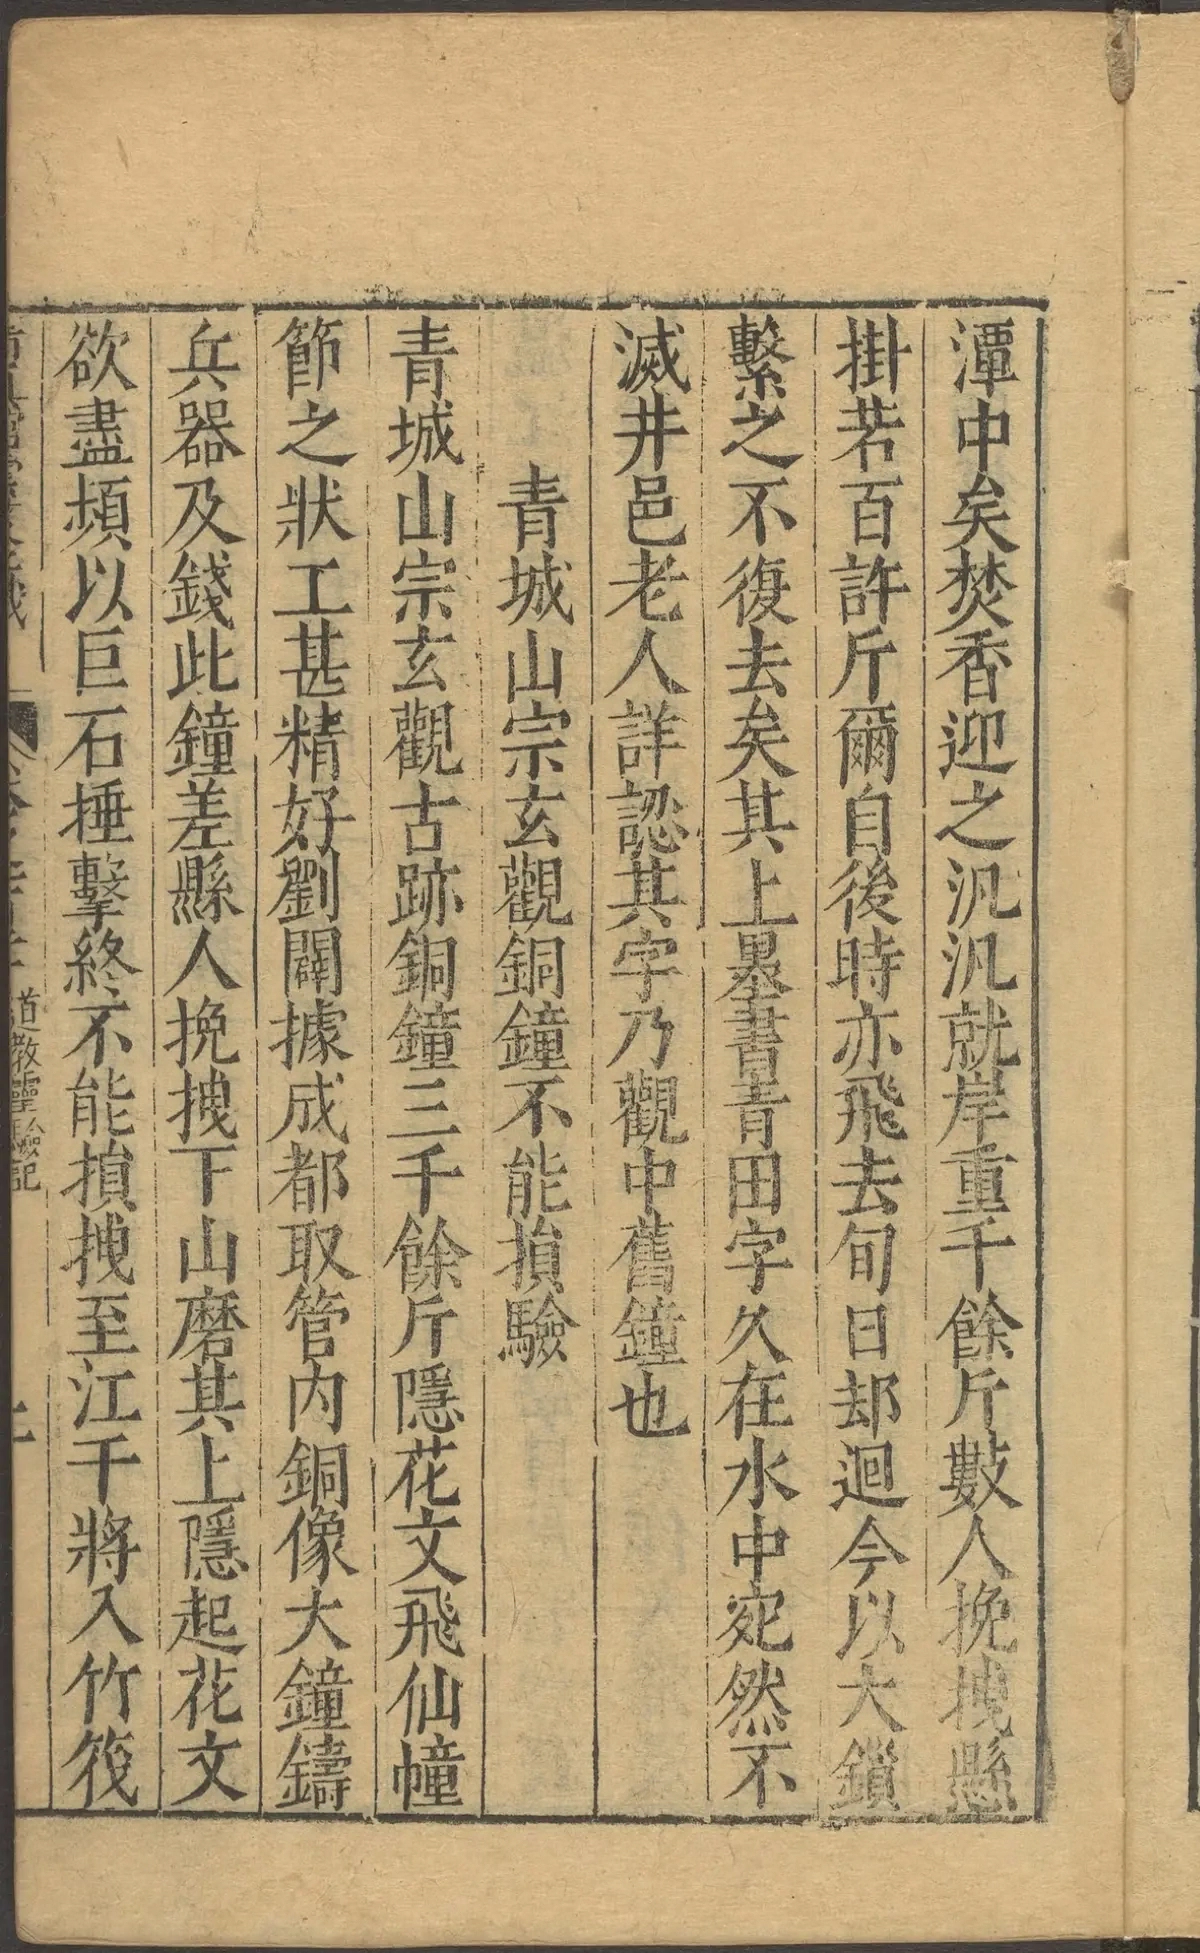 潭中矣焚香迎之汎汎就岸重千餘斤數人挽拽懸
掛若百許斤爾自後時亦飛去旬日却迴今以大鎖
繫之不復去矣其上墨書青田字久在水中宛然不
滅井邑老人詳認其字乃觀中舊鐘也
青城山宗玄觀銅鐘不能損驗
青城山宗玄觀古跡銅鐘三千餘斤隱花文飛仙幢
節之狀工甚精好劉闢據成都取管内銅像大鐘鑄
兵器及錢此鐘差縣人挽拽下山磨其上隱起花文
欲盡頻以巨石捶擊終不能損拽至江干將入竹筏
道教靈驗記